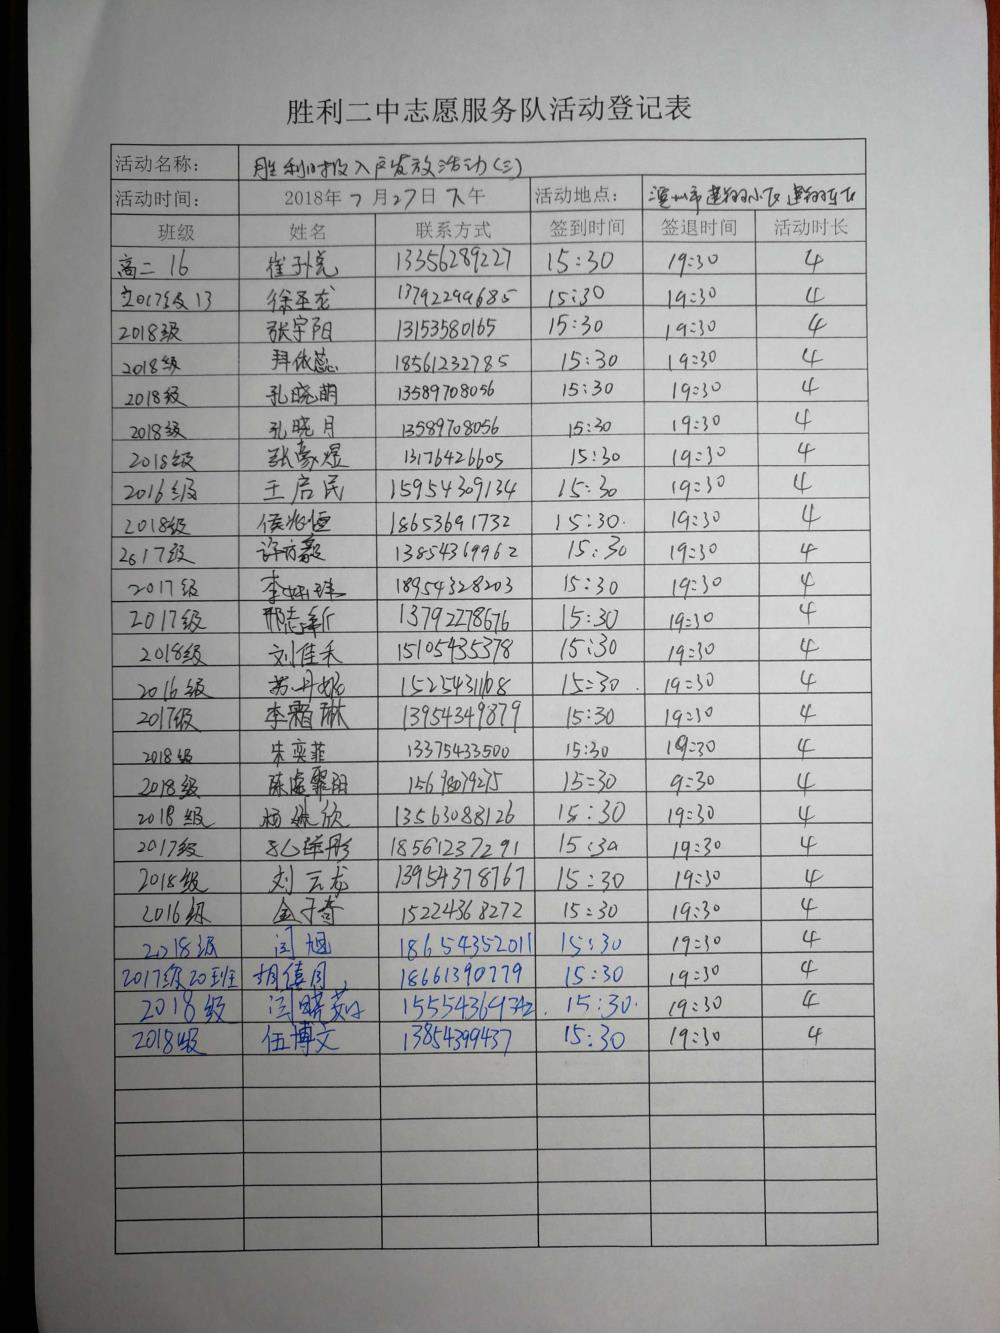 胜利二中志愿服务队活动登记表
活动名称: 胜利时报入户发放活动(三)
活动时间: 2018年7月27日下午 活动地点: 滨州市
班级 姓名 联系方式 签到时间 签退时间 活动时长
高二 16 崔 13356289227 15:30 19:30 4
2017级13 徐圣龙 13792299685 15:30 19:30 4
2018级 张宇阳 13153580165 15:30 19:30 4
2018级 拜依蕊 18561232785 15:30 19:30 4
2018级 孔晓萌 13589708056 15:30 19:30 4
2018级 孔晓月 13589708056 15:30 19:30 4
2018级 张豪煜 13176426605 15:30 19:30 4
2016级 王启民 15954309134 15:30 19:30 4
2018级 侯兆恒 18653691732 15:30. 19:30 4
2017级 许方毅 13854369962 15:30 19:30 4
2017级 李 18954328203 15:30 19:30 4
2017级 邢志新 13792278676 15:30 19:30 4
2018级 刘佳禾 15105435378 15:30 19:30 4
2016级 苏丹妮 15254311108 15:30 19:30 4
2017级 李霜琳 13954349879 15:30 19:30 4
2018级 朱奕菲 13375433500 15:30 19:30 4
2018级 陈 15698079275 15:30 9:30 4
2018级 杨 欣 13563088126 15:30 19:30 4
2017级 孔祥彤 18561237291 15:30 19:30 4
2018级 刘云龙 13954378767 15:30 19:30 4
2016级 金子奇 15224368272 15:30 19:30 4
2018级 闫旭 18654352011 15:30 19:30 4
2017级20班 胡僖月 18661390779 15:30 19:30 4
2018级 闫晓 15554369342. 15:30. 19:30 4
2018级 伍博文 13854399437 15:30 19:30 4